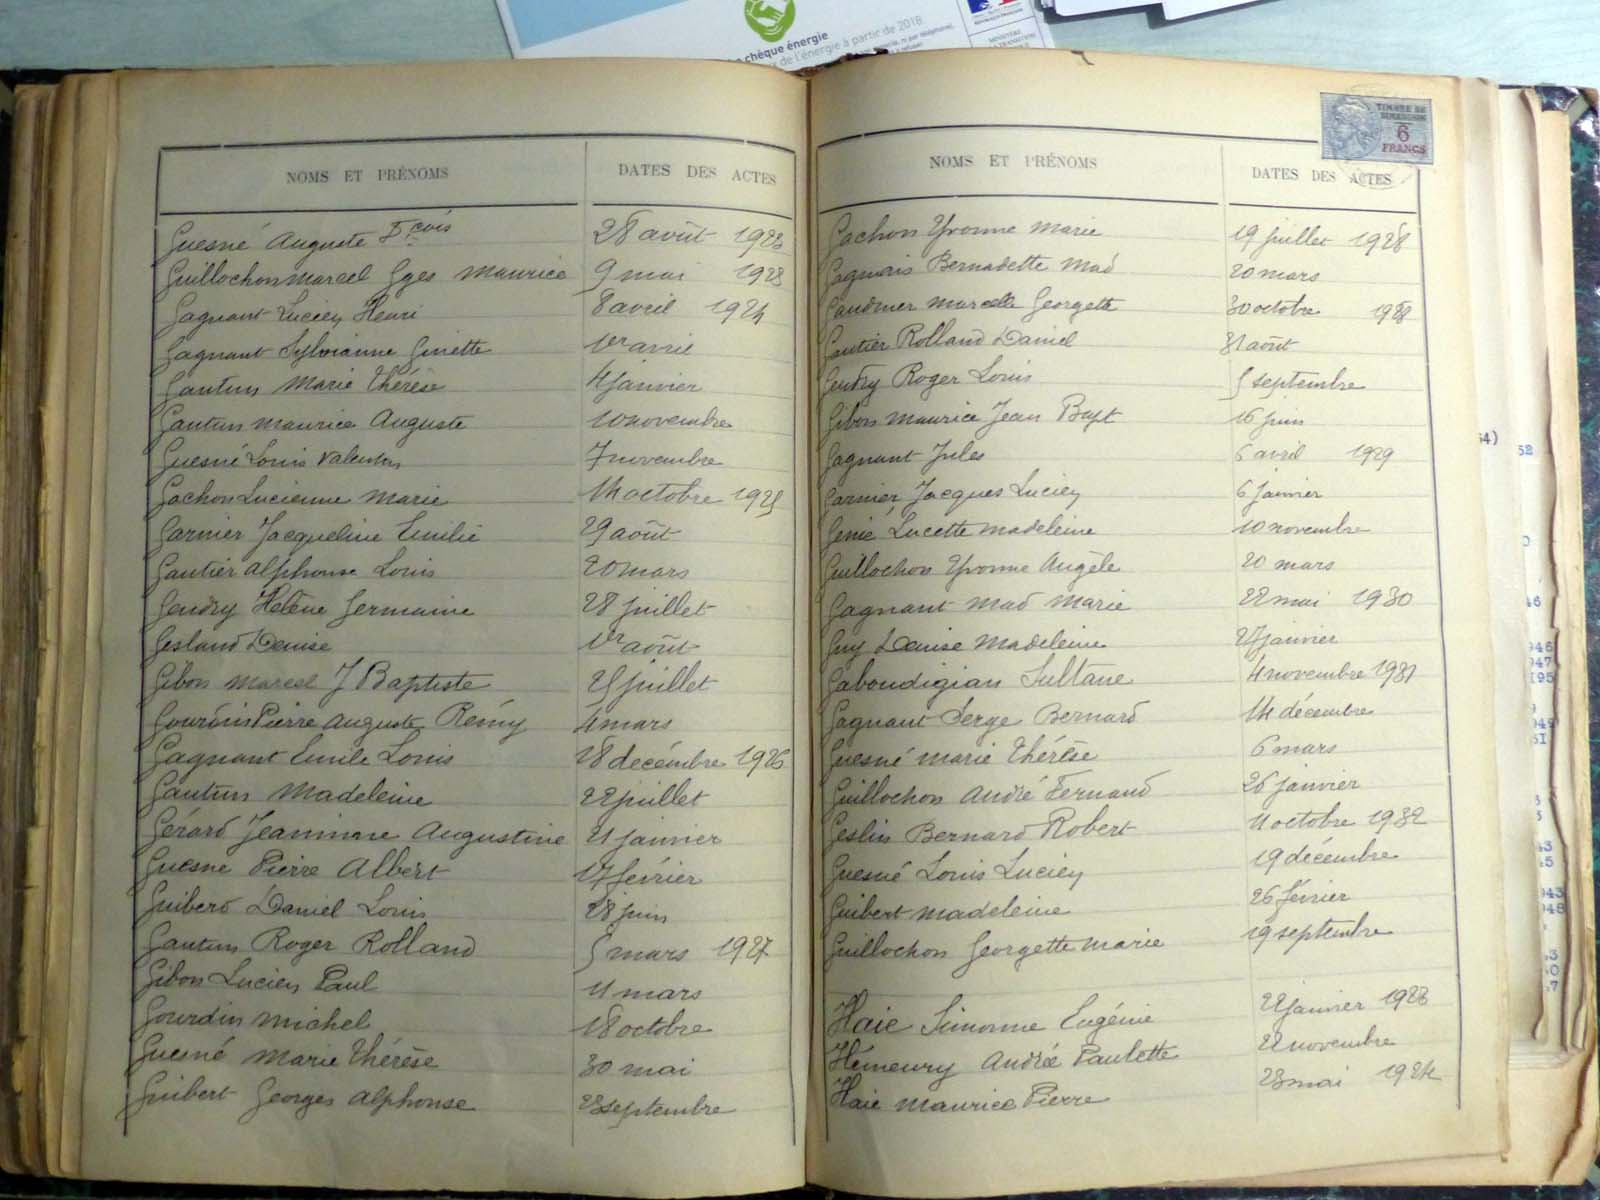 chèque énergie
de l'énergie à partir de 2018
TIMBRE DE DIMENSION
6
FRANCS
NOMS ET PRÉNOMS DATES DES ACTES
Guesné Auguste Fçois 28 août 1923
Guillochon Marcel Gges Maurice 9 mai 1923
Gagnant Lucien Henri 8 avril 1924
Gagnant Sylvianne Ginette 1er avril
Gautun Marie Thérèse 4 janvier
Gautun Maurice Auguste 10 novembre
Guesné Louis Valentin 7 novembre
Gachon Lucienne Marie 14 octobre 1925
Garnier Jacqueline Emilie 29 août
Gautier Alphonse Louis 20 mars
Gendry Hélène Germaine 28 juillet
Gesland Denise 1er août
Gibon Marcel J Baptiste 25 juillet
Gourdin Pierre Auguste Rémy 4 mars
Gagnant Emile Louis 18 decémbre 1926
Gautun Madeleine 22 juillet
Gérard Jeannine Augustine 21 janvier
Guesne Pierre Albert 17 février
Guiberd Daniel Louis 28 juin
Gautun Roger Rolland 5 mars 1927
Gibon Lucien Paul 11 mars
Gourdin Michel 18 octobre
Guesné Marie Thérèse 30 mai
Guibert Georges Alphonse septembre
NOMS ET PRÉNOMS DATES DES ACTES
Gachon Yvonne Marie 19 juillet 1928
Bernadette Mad 20 mars
Marcelle Georgette 30 octobre 1928
Gautier Rolland Daniel 31 août
Gendry Roger Louis 5 septembre
Gibon Maurice Jean Bapt 16 juin
Gagnant Jules 6 avril 1929
Garnier Jacques Lucien 6 janvier
Génié Lucette Madeleine 10 novembre
Guillochon Yvonne Angèle 20 mars
Gagnant Mad Marie 22 mai 1930
Guy Denise Madeleine 27 janvier
Gaboudigian Sultane 4 novembre 1931
Gagnant Serge Bernard 14 décembre
Guesné Marie Thérèse 6 mars
Guillochon André Fernand 26 janvier
Geslin Bernard Robert 11 octobre 1932
Guesné Louis Lucien 19 décembre
Guibert Madeleine 26 février
Guillochon Georgette Marie 19 septembre
Haie Simonne Eugénie 22 janvier 1923
Hémeury Andrée Paulette 22 novembre
Haie Maurice Pierre 23 mai 1924